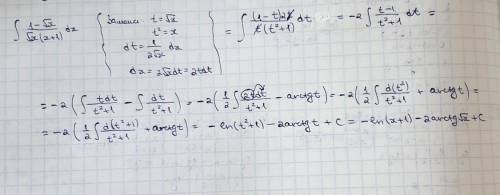 ∫ (1-√x)/(√x(x+1)) dx { Замена: t=√x } = ∫ ((1-t)2t)/(t(t²+1)) dt = -2 ∫ (t-1)/(t²+1) dt =
t²=x
dt = 1/(2√x) dx
dx = 2√x dt = 2tdt
= -2 (∫ tdt/(t²+1) - ∫ dt/(t²+1)) = -2 (1/2 ∫ 2tdt/(t²+1) - arctgt) = -2 (1/2 ∫ d(t²)/(t²+1) + arctgt) =
= -2 (1/2 ∫ d(t²+1)/(t²+1) + arctgt) = -ln(t²+1) - 2arctgt + C = -ln(x+1) - 2arctg√x + C